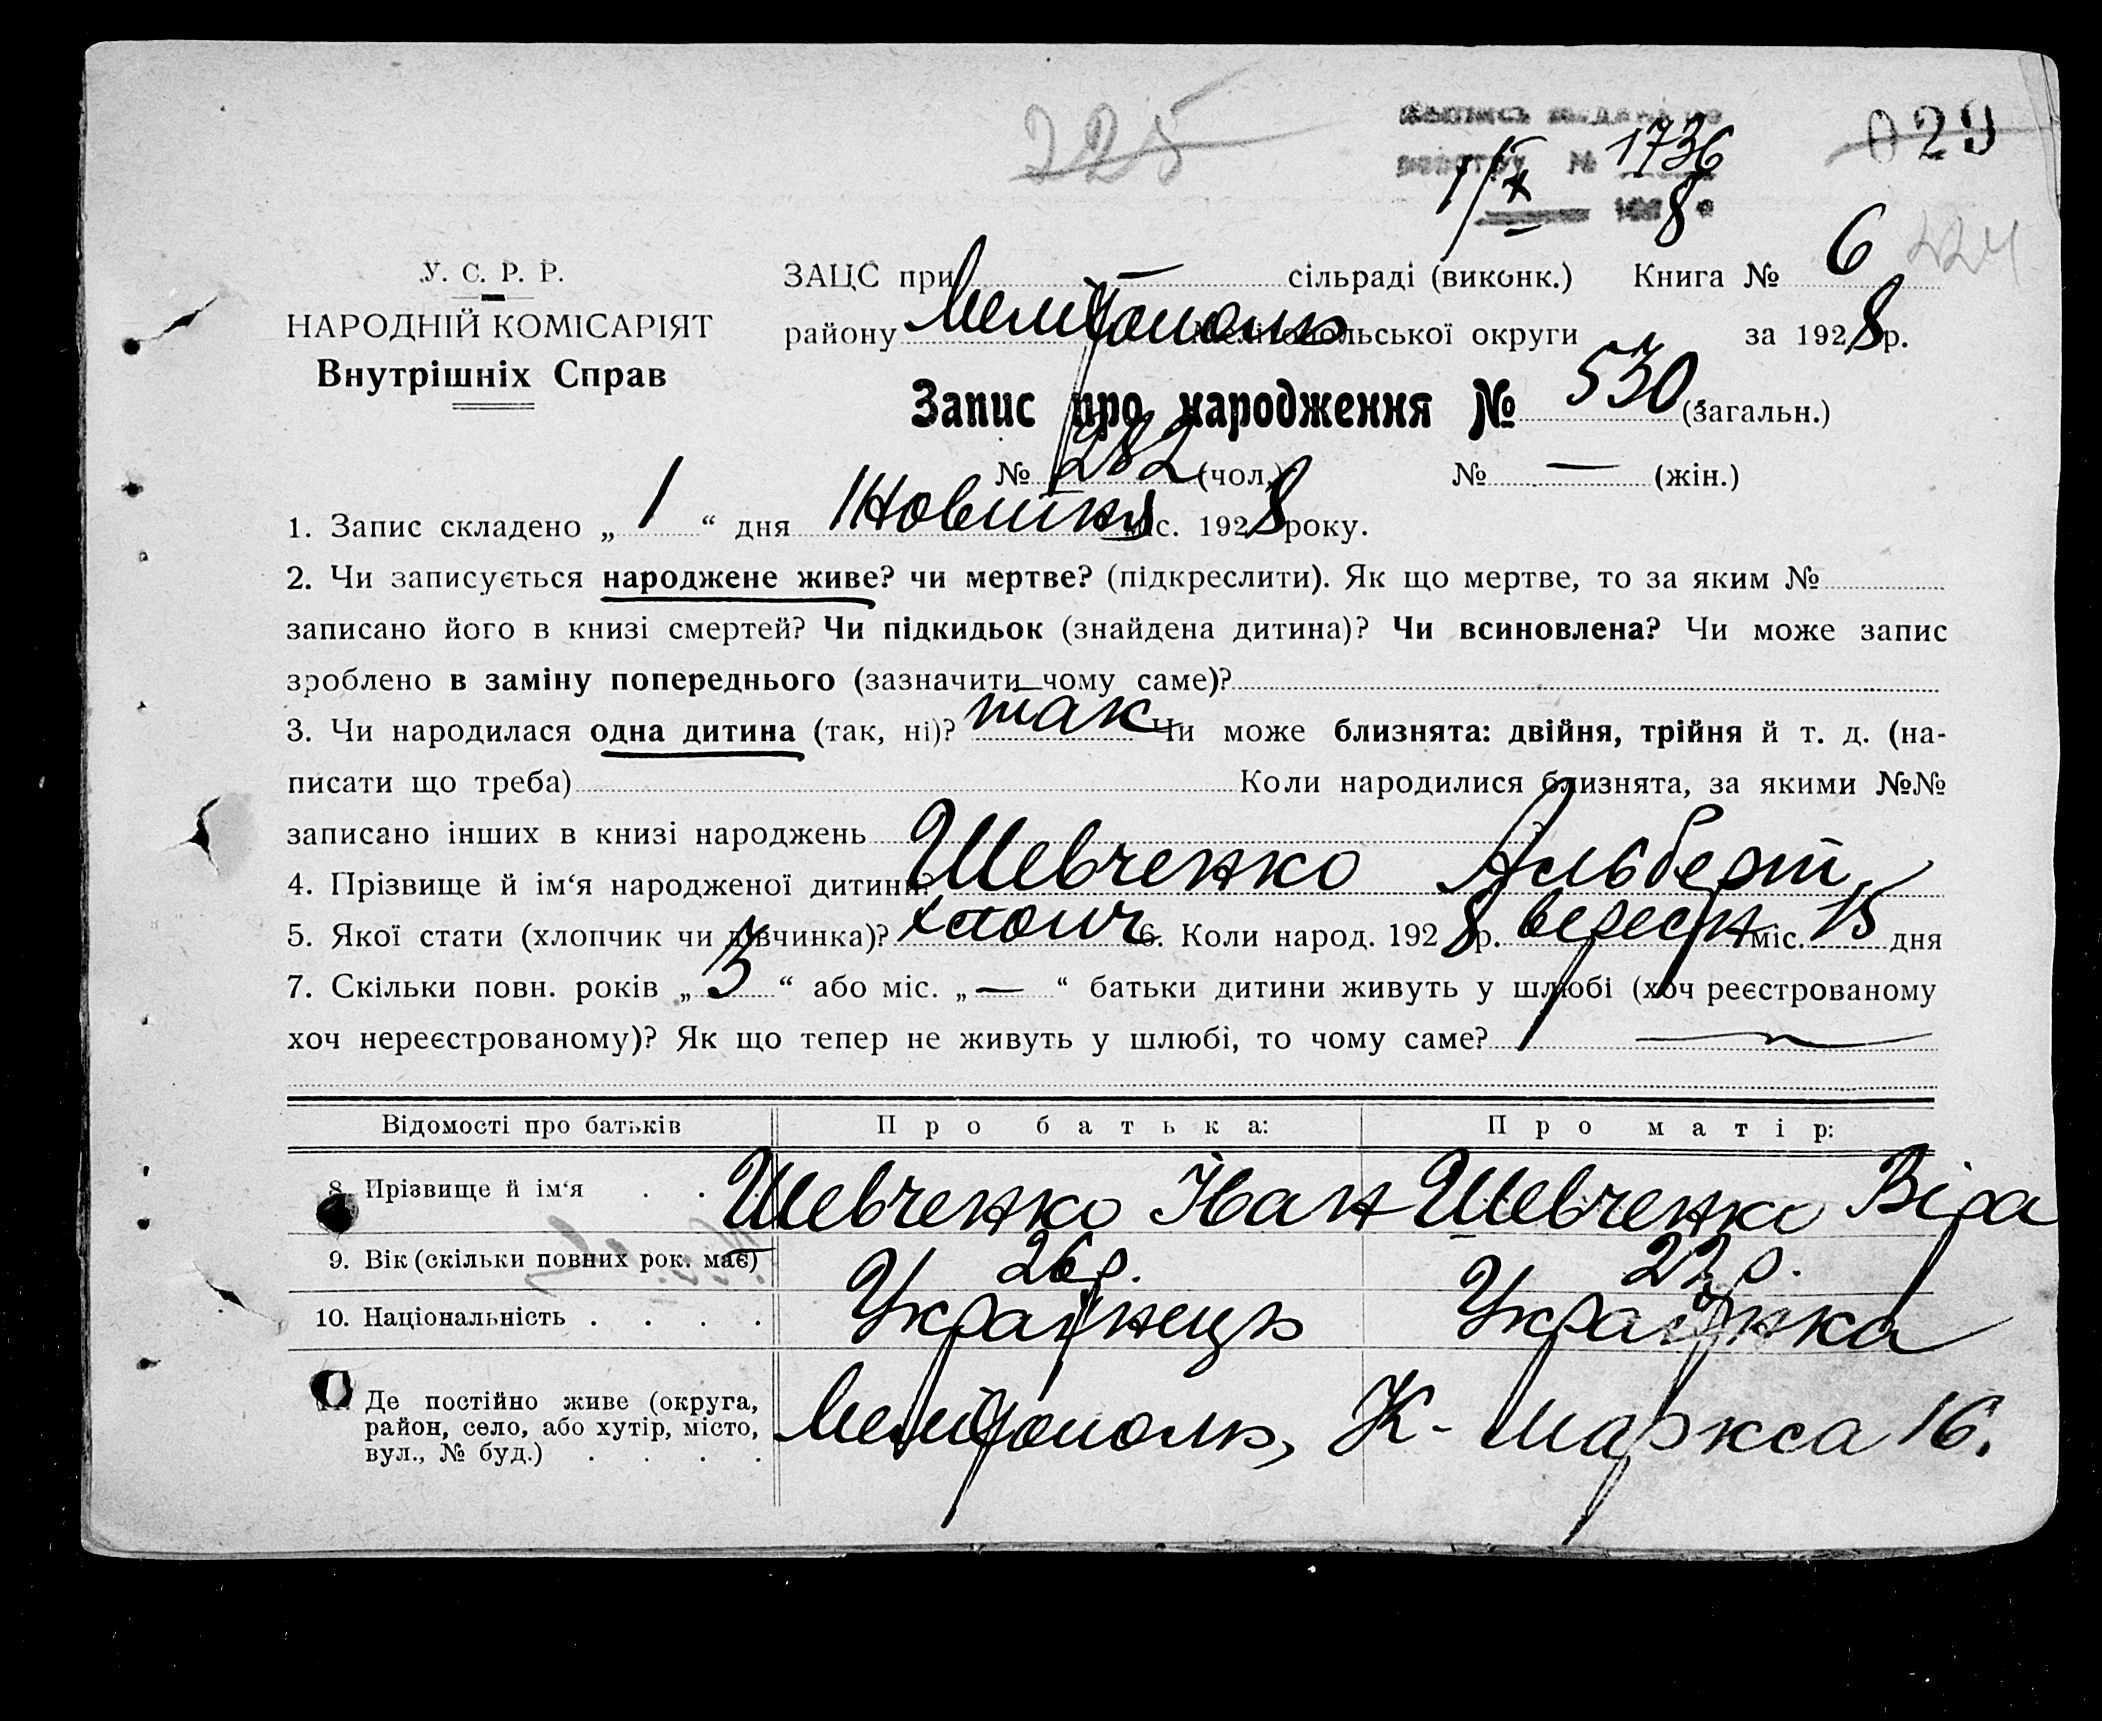 225
1736
029
1/X
8
224
У. С. Р. Р.
НАРОДНІЙ КОМІСАРІЯТ
Внутрішніх Справ
ЗАЦС при — сільраді (виконк.) Книга № 6
району Мелітополь Мелітопольської округи за 1928 р.
Запис про народження № 530 (загальн.)
№ 282 (чол.) № — (жін.)
1. Запис складено „ 1 “ дня Жовтня міс. 1928 року.
2. Чи записується народжене живе? чи мертве? (підкреслити). Як що мертве, то за яким №
записано його в книзі смертей? Чи підкидьок (знайдена дитина)? Чи всиновлена? Чи може запис
зроблено в заміну попереднього (зазначити чому саме)?
3. Чи народилася одна дитина (так, ні)? так Чи може близнята: двійня, трійня й т. д. (на-
писати що треба) Коли народилися близнята, за якими №№
записано інших в книзі народжень
4. Прізвище й ім‘я народженої дитини? Шевченко Альберт
5. Якої стати (хлопчик чи дівчинка)? хлопч 6. Коли народ. 1928 р. вересн міс. 15 дня
7. Скільки повн. років „ 3 “ або міс. „ — “ батьки дитини живуть у шлюбі (хоч реєстрованому
хоч нереєстрованому)? Як що тепер не живуть у шлюбі, то чому саме? —
Відомості про батьків Про батька: Про матір:
8. Прізвище й ім‘я . . Шевченко Іван Шевченко Віра
9. Вік (скільки повних рок. має) 26 р. 22 р.
10. Національність . . . . Українець Українка
11. Де постійно живе (округа,
район, село, або хутір, місто,
вул., № буд.) . . . .
Мелітополь, К-Маркса 16.